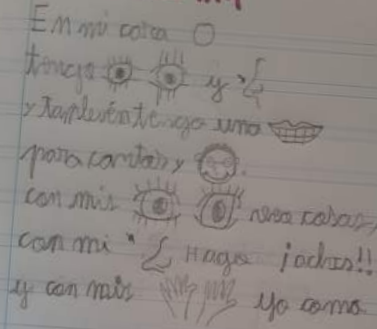 En mi cara
tengo y
y tambien tengo una
para cantar y
con mis veo cosas,
con mi Hago ¡achis!!
y con mis yo como